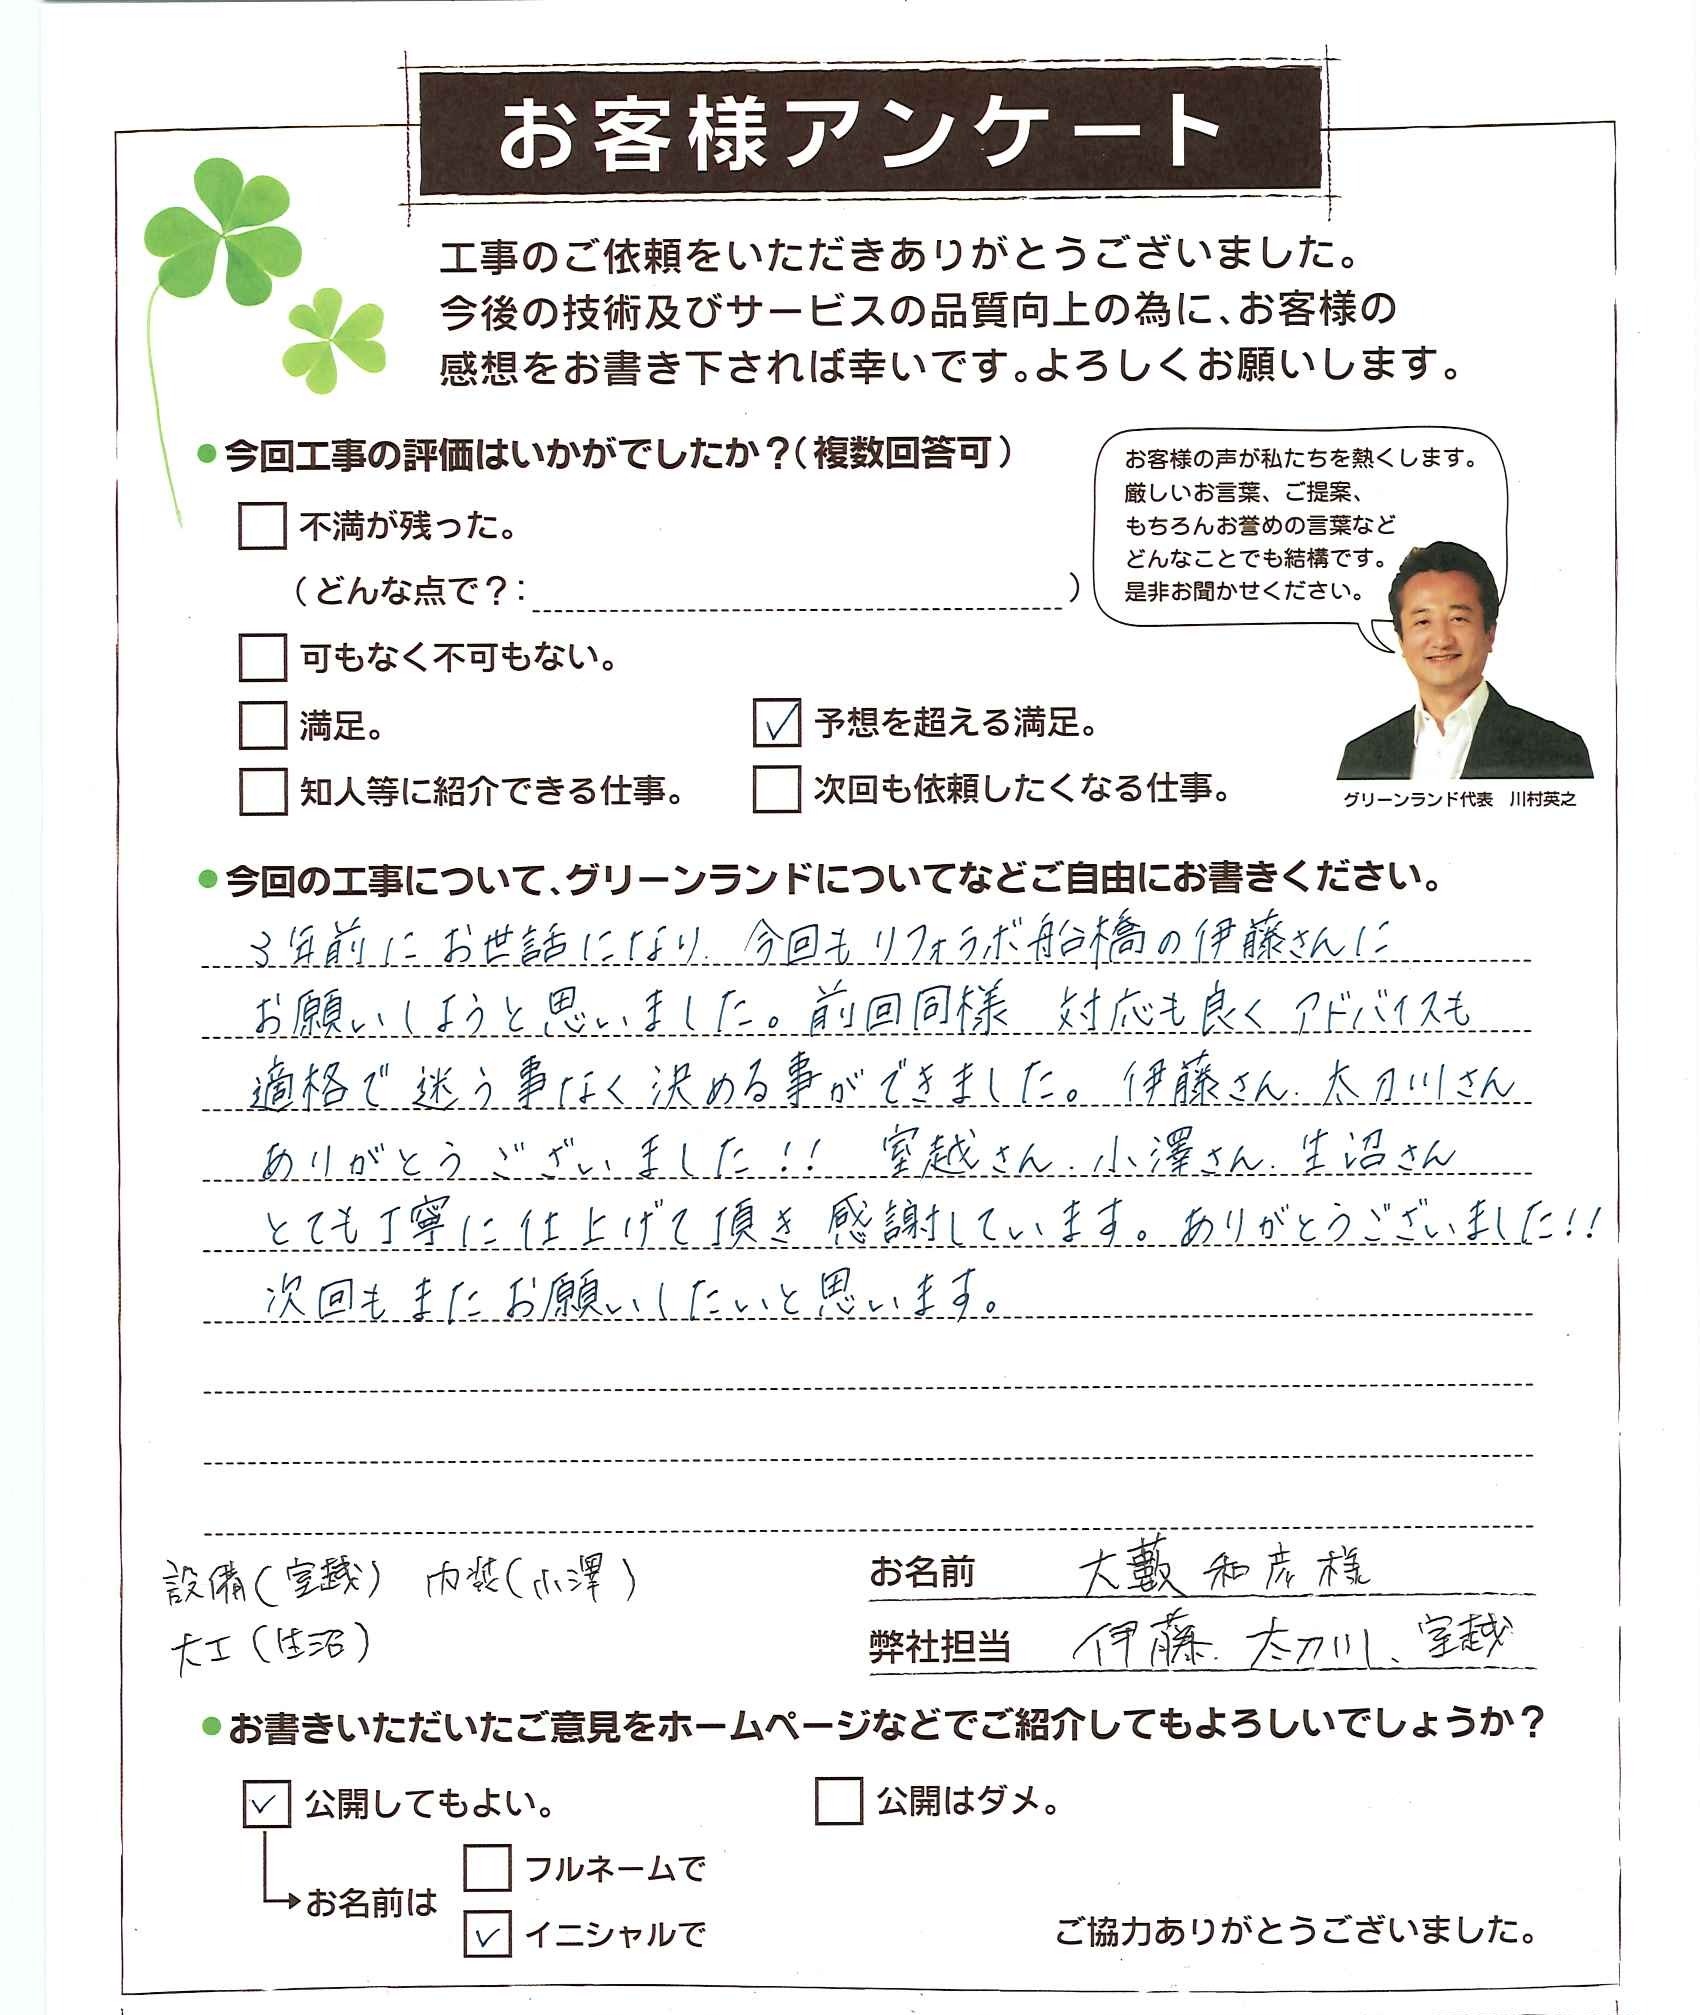 お客様アンケート
工事のご依頼をいただきありがとうございました。
今後の技術及びサービスの品質向上の為に、お客様の
感想をお書き下されば幸いです。よろしくお願いします。
●今回工事の評価はいかがでしたか？（複数回答可）
お客様の声が私たちを熱くします。
厳しいお言葉、ご提案、
もちろんお誉めの言葉など
どんなことでも結構です。
是非お聞かせください。
グリーンランド代表　川村英之
□ 不満が残った。
（どんな点で？：　　　　　）
□ 可もなく不可もない。
□ 満足。　☑ 予想を超える満足。
□ 知人等に紹介できる仕事。　□ 次回も依頼したくなる仕事。
●今回の工事について、グリーンランドについてなどご自由にお書きください。
3年前にお世話になり、今回もリフォラボ船橋の伊藤さんに
お願いしようと思いました。前回同様 対応も良く アドバイスも
適格で 迷う事なく決める事ができました。伊藤さん、太刀川さん
ありがとうございました!! 室越さん、小澤さん、生沼さん
とても丁寧に仕上げて頂き 感謝しています。ありがとうございました!!
次回もまたお願いしたいと思います。
設備(室越) 内装(小澤)
大工(生沼)
お名前　大藪 和彦 様
弊社担当　伊藤、太刀川、室越
●お書きいただいたご意見をホームページなどでご紹介してもよろしいでしょうか？
☑ 公開してもよい。　□ 公開はダメ。
→お名前は
□ フルネームで
☑ イニシャルで
ご協力ありがとうございました。